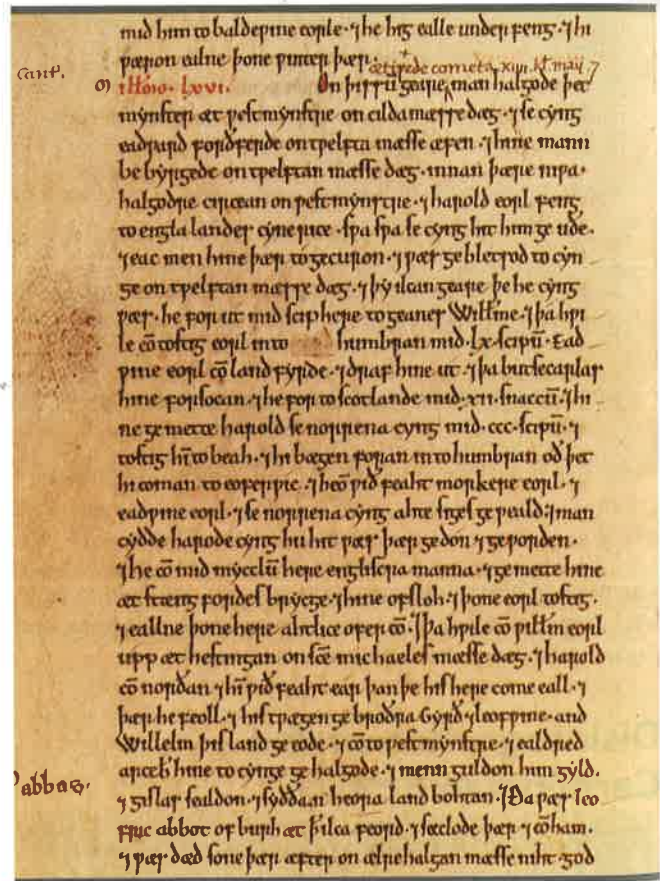 mid him to baldeƿine eorle. ⁊ he hig ealle underfeng. ⁊ hi
ƿæron ealne þone ƿinter þær.
ætiƿede cometa xiiii kł maii ⁊
cant.
Mill̅o̅. lxvi. On þissū geare man halgode þet
mynster æt ƿestmynstre on cildamæsse dæg. ⁊ se cyng
eadƿard forðferde on tƿelfta mæsse æfen. ⁊ hine mann
bebyrgede on tƿelftan mæsse dæg. innan þære niƿa.
halgodre circean on ƿestmynstre. ⁊ harold eorl feng
to englalandes cynerice. sƿa sƿa se cyng hit him geuðe.
⁊ eac men hine þær to gecuron. ⁊ ƿæs gebletsod to cyn
ge on tƿelftan mæsse dæg. ⁊ þy ilcan geare þe he cyng
ƿæs. he for ut mid sciphere togeanes Willme. ⁊ þa hƿi
le cō tostig eorl into humbran mid .lx. scipū. Ead
ƿine eorl cō landfyrde. ⁊ draf hine ut. ⁊ þa butsecarlas
hine forsocan. ⁊ he for to scotlande mid .xii. snaccū. ⁊ hi
ne gemette harold se norrena cyng mid .ccc. scipū. ⁊
tostig hī to beah. ⁊ hi bægen foran into humbran oð þet
hi coman to eoferƿic. ⁊ heō ƿið feaht morkere eorl. ⁊
eadƿine eorl. ⁊ se norrena cyng ahte siges geƿeald. ⁊ man
cydde harode cyng hu hit ƿæs þær gedon ⁊ geƿorden.
⁊ he cō mid mycclū here engliscra manna. ⁊ gemette hine
æt stængfordesbrycge. ⁊ hine ofsloh. ⁊ þone eorl tostig.
⁊ eallne þone here ahtlice ofercō. ⁊ þa hƿile cō ƿillm eorl
upp æt hestingan on sc̄e michaeles mæsse dæg. ⁊ harold
cō norðan ⁊ hī ƿið feaht ear þan þe his here come eall. ⁊
þær he feoll. ⁊ his tƿægen gebroðra Gyrð ⁊ leofƿine. and
Willelm þis land geeode. ⁊ cō to ƿestmynstre. ⁊ ealdred
arceb̄ hine to cynge gehalgode. ⁊ menn guldon him gyld.
⁊ gislas sealdon. ⁊ syððan heora land bohtan. ⁊ Ða ƿæs leo
abbas.
fric abbot of burh æt þ̄ ilca feord. ⁊ sæclode þær ⁊ cō ham.
⁊ ƿæs dæd sone þær æfter on ælre halgan mæsse niht. god